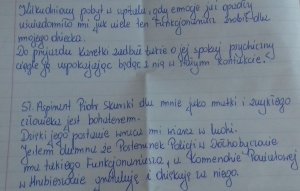 Kilkudniowy pobyt w szpitalu, gdy emocje już opadły
uświadomiło mi jak wiele ten Funkcjonariusz zrobił dla
mojego dziecka.
Do przyjazdu karetki zadbał także o jej spokój psychiczny
ciągle ją uspokajając będąc z nią w stałym kontakcie.
Aspirant Piotr Skurski dla mnie jako matki i zwykłego
człowieka jest bohaterem.
Dzięki jego postawie wraca mi wiara w ludzi.
Jestem dumna że Posterunek Policji w Dołhobyczowie
ma takiego Funkcjonariusza, a Komendzie Powiatowej
w Hrubieszowie gratuluję i dziękuję za niego.